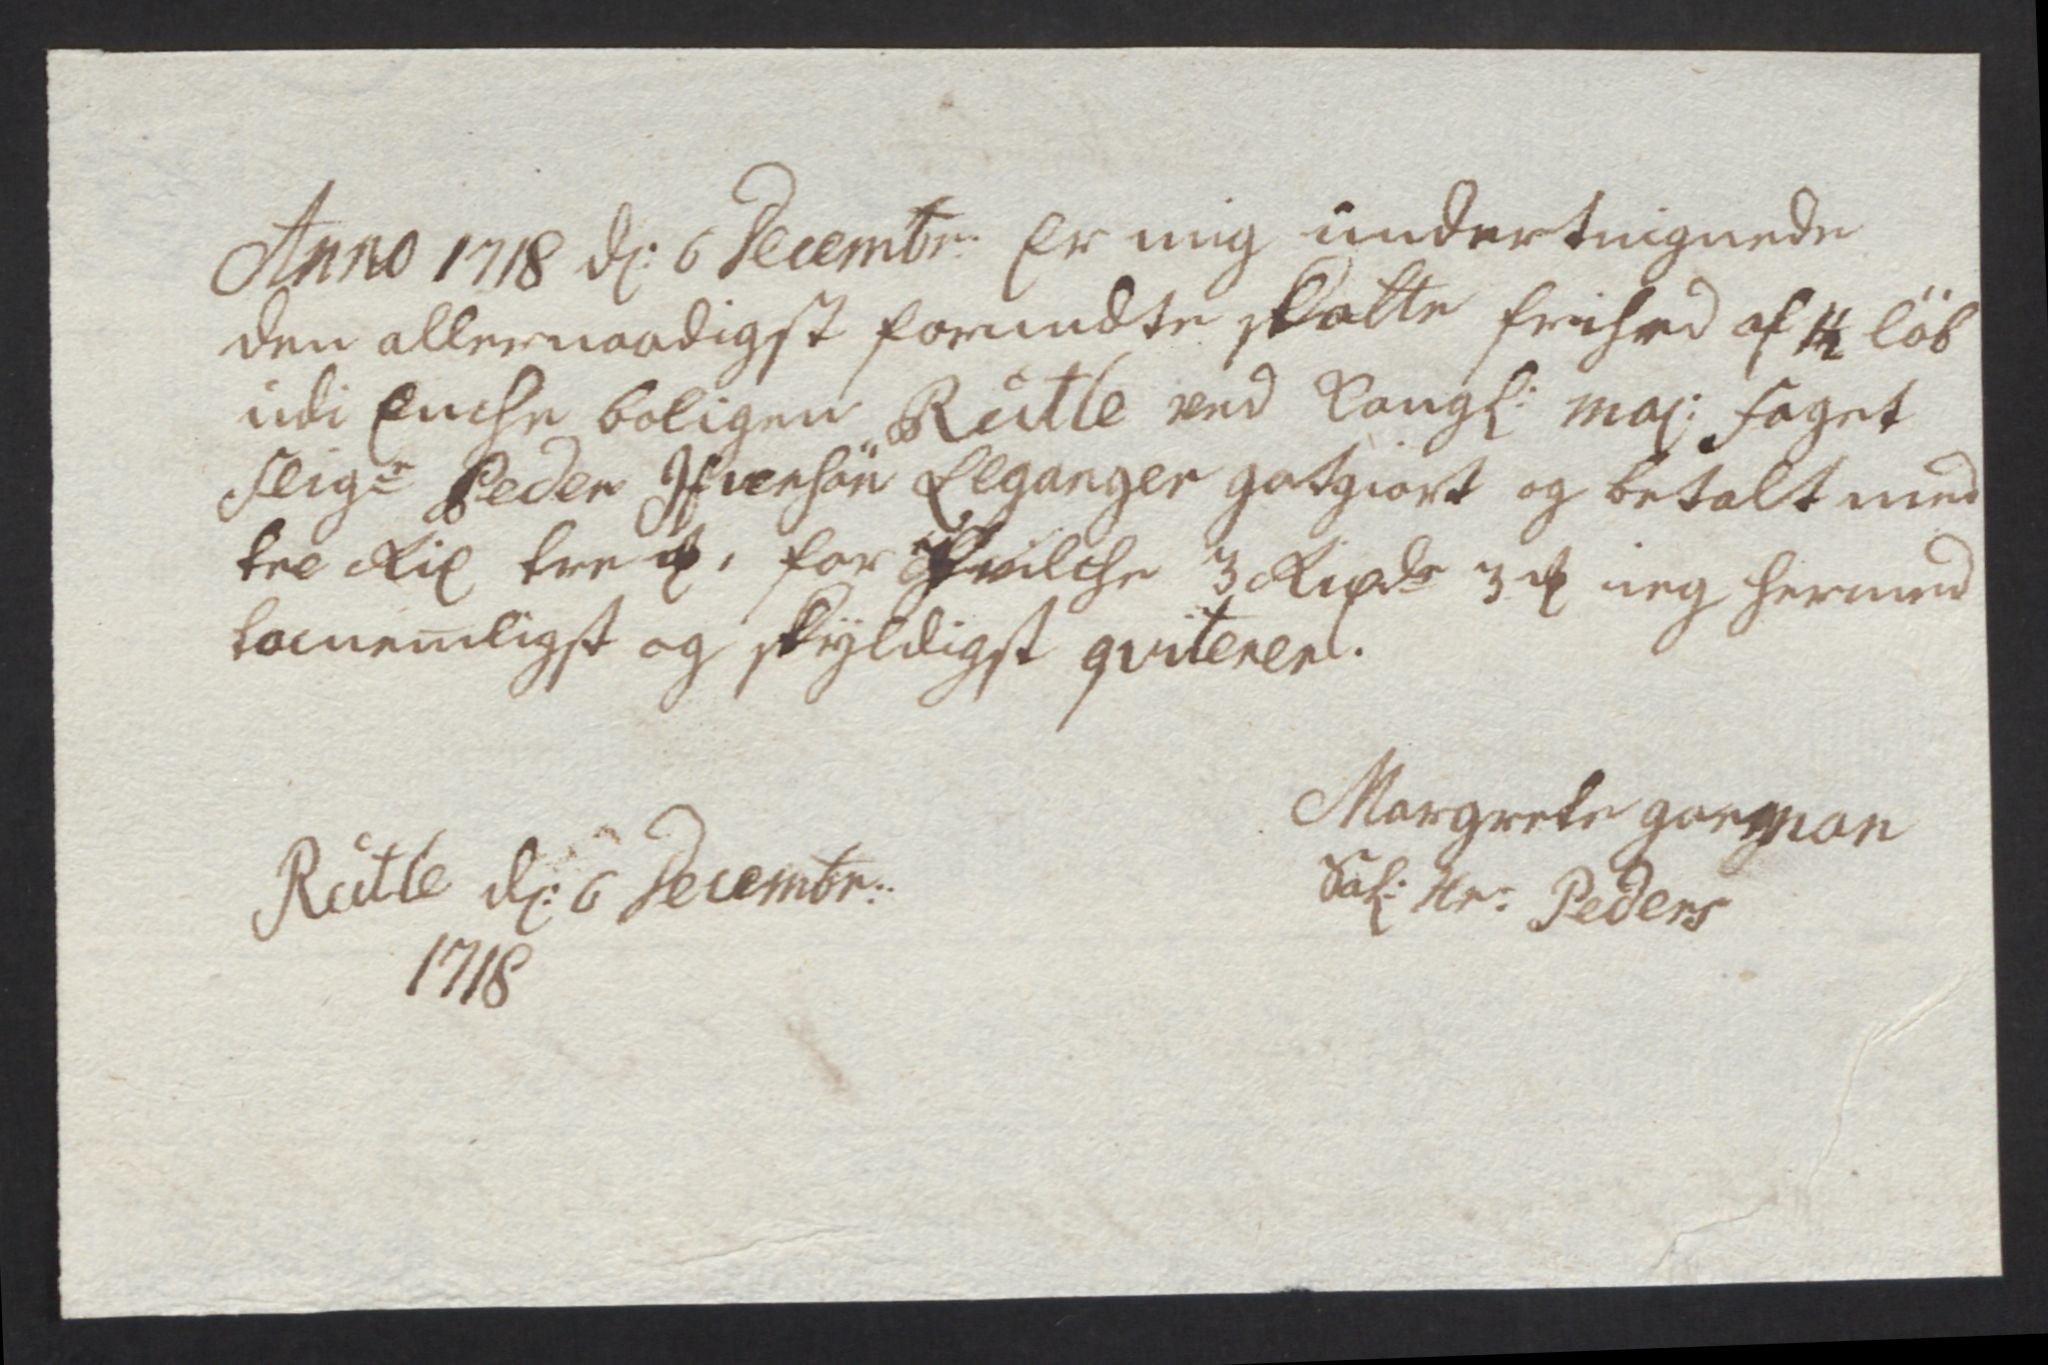 Anno 1718 d: 6 Decembr: Er mig undertegnede
den allernaadigst forundte skatte frihed af 1½ löb
udi Enche boligen Rutle ved Kongl: maj: Foget
Seigr Peder Ifuersön Elganger gotgiort og betalt med
tre Rix tre ɱ, for hvilche 3 Rixdr 3 ɱ ieg hermed
tacnemligst og skyldigst qviterer.
Margrete garman
Sal: Hr: Peders
Rutle d: 6 Decembr:
1718